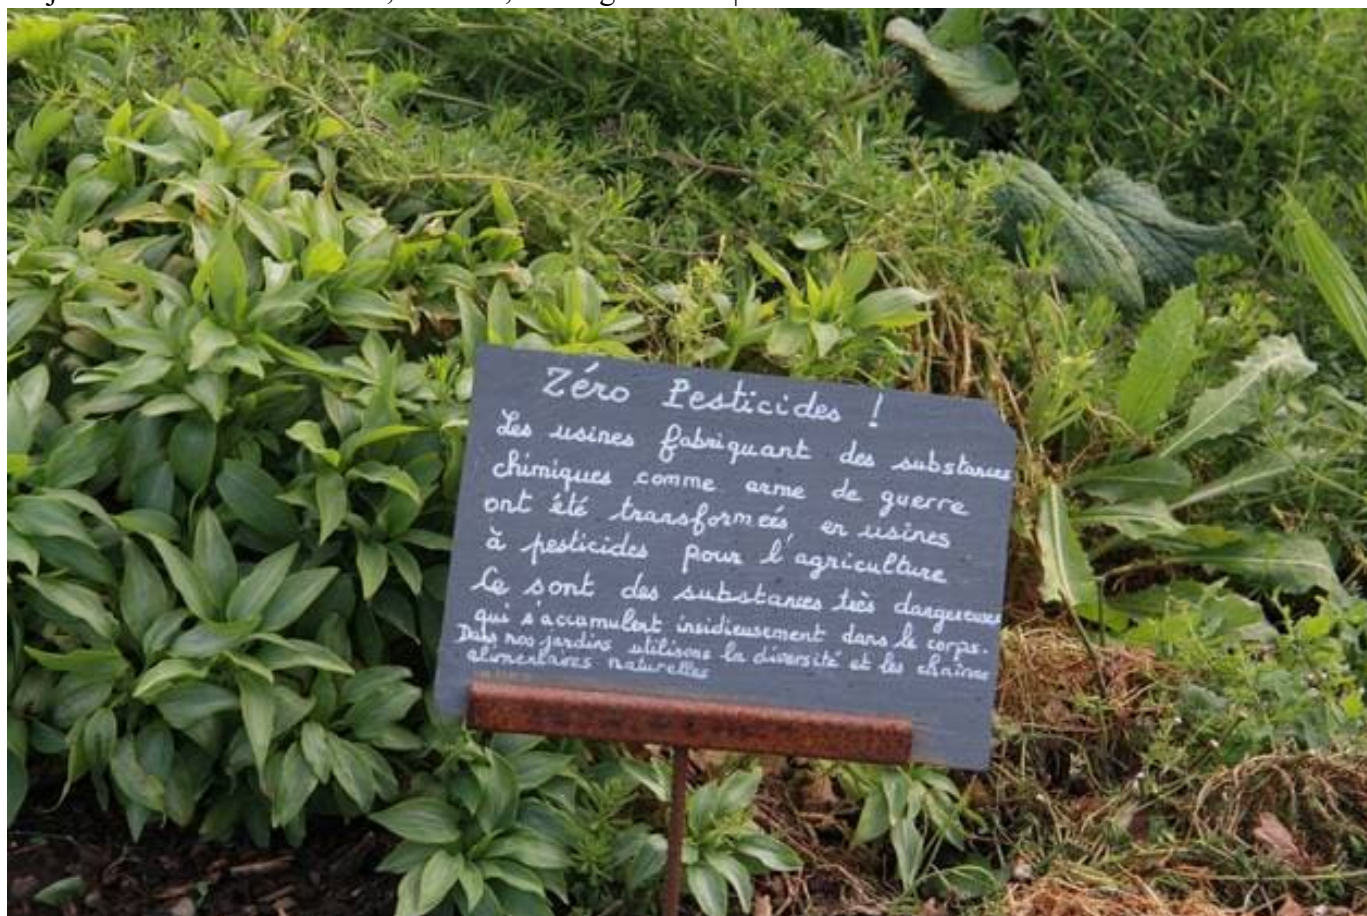 Zéro Pesticides !
Les usines fabriquant des substances
chimiques comme arme de guerre
ont été transformées en usines
à pesticides pour l'agriculture
Ce sont des substances très dangereuses
qui s'accumulent insidieusement dans le corps.
Dans nos jardins utilisons la diversité et les chaînes
alimentaires naturelles